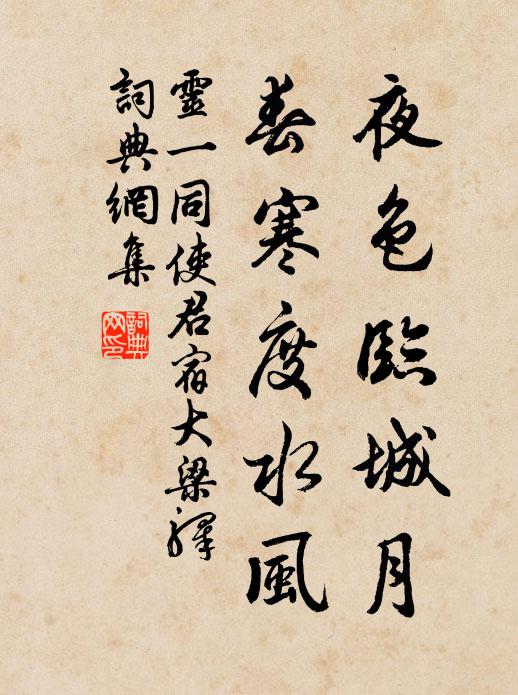 夜色臨城月
春寒度水風
靈一同使君宿大梁驛
詞典網集
詞典網印